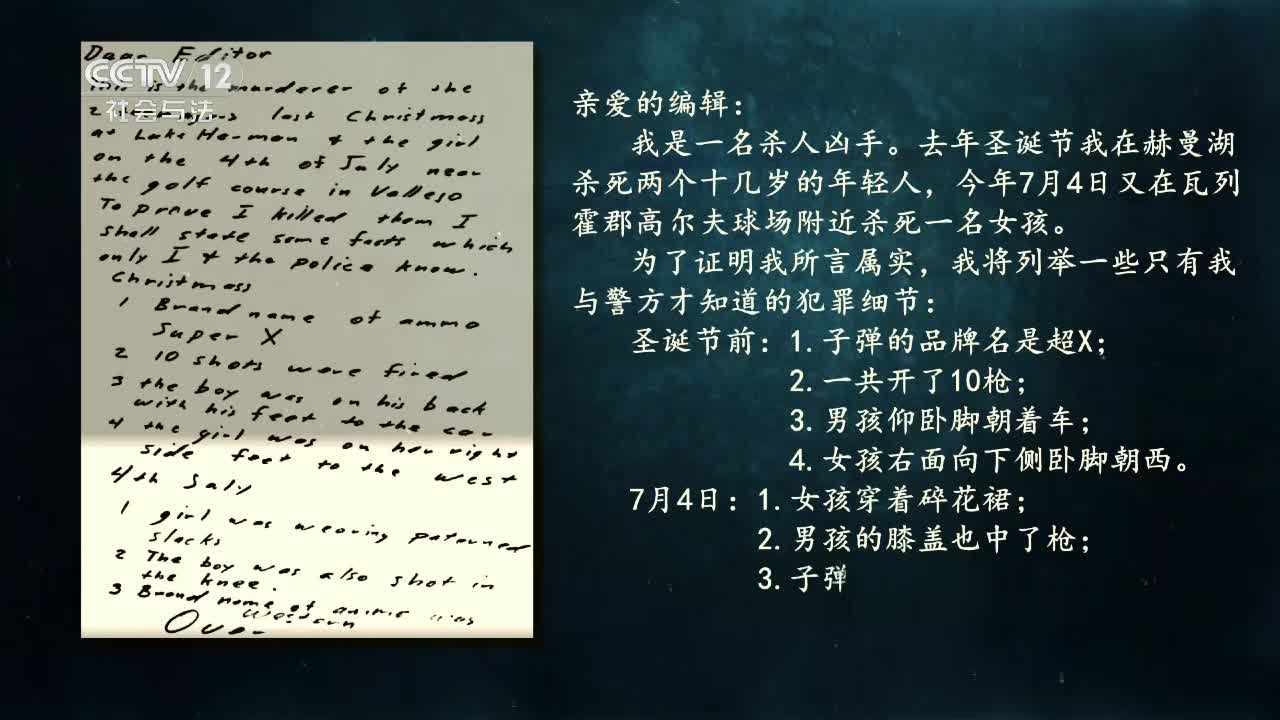 Dear Editor
CCTV 12
社会与法
This is the murderer of the
2 teenagers last Christmass
at Lake Herman & the girl
on the 4th of July near
the golf course in Vallejo
To prove I killed them I
shall state some facts which
only I & the police know.
Christmass
1 Brand name of ammo
Super X
2 10 shots were fired
3 the boy was on his back
with his feet to the car
4 the girl was on her right
side feet to the west
4th July
1 girl was wearing paterned
slacks
2 The boy was also shot in
the knee.
3 Brand name of ammo was
Western
Over
亲爱的编辑：
我是一名杀人凶手。去年圣诞节我在赫曼湖
杀死两个十几岁的年轻人，今年7月4日又在瓦列
霍郡高尔夫球场附近杀死一名女孩。
为了证明我所言属实，我将列举一些只有我
与警方才知道的犯罪细节：
圣诞节前：1.子弹的品牌名是超X；
2.一共开了10枪；
3.男孩仰卧脚朝着车；
4.女孩右面向下侧卧脚朝西。
7月4日：1.女孩穿着碎花裙；
2.男孩的膝盖也中了枪；
3.子弹